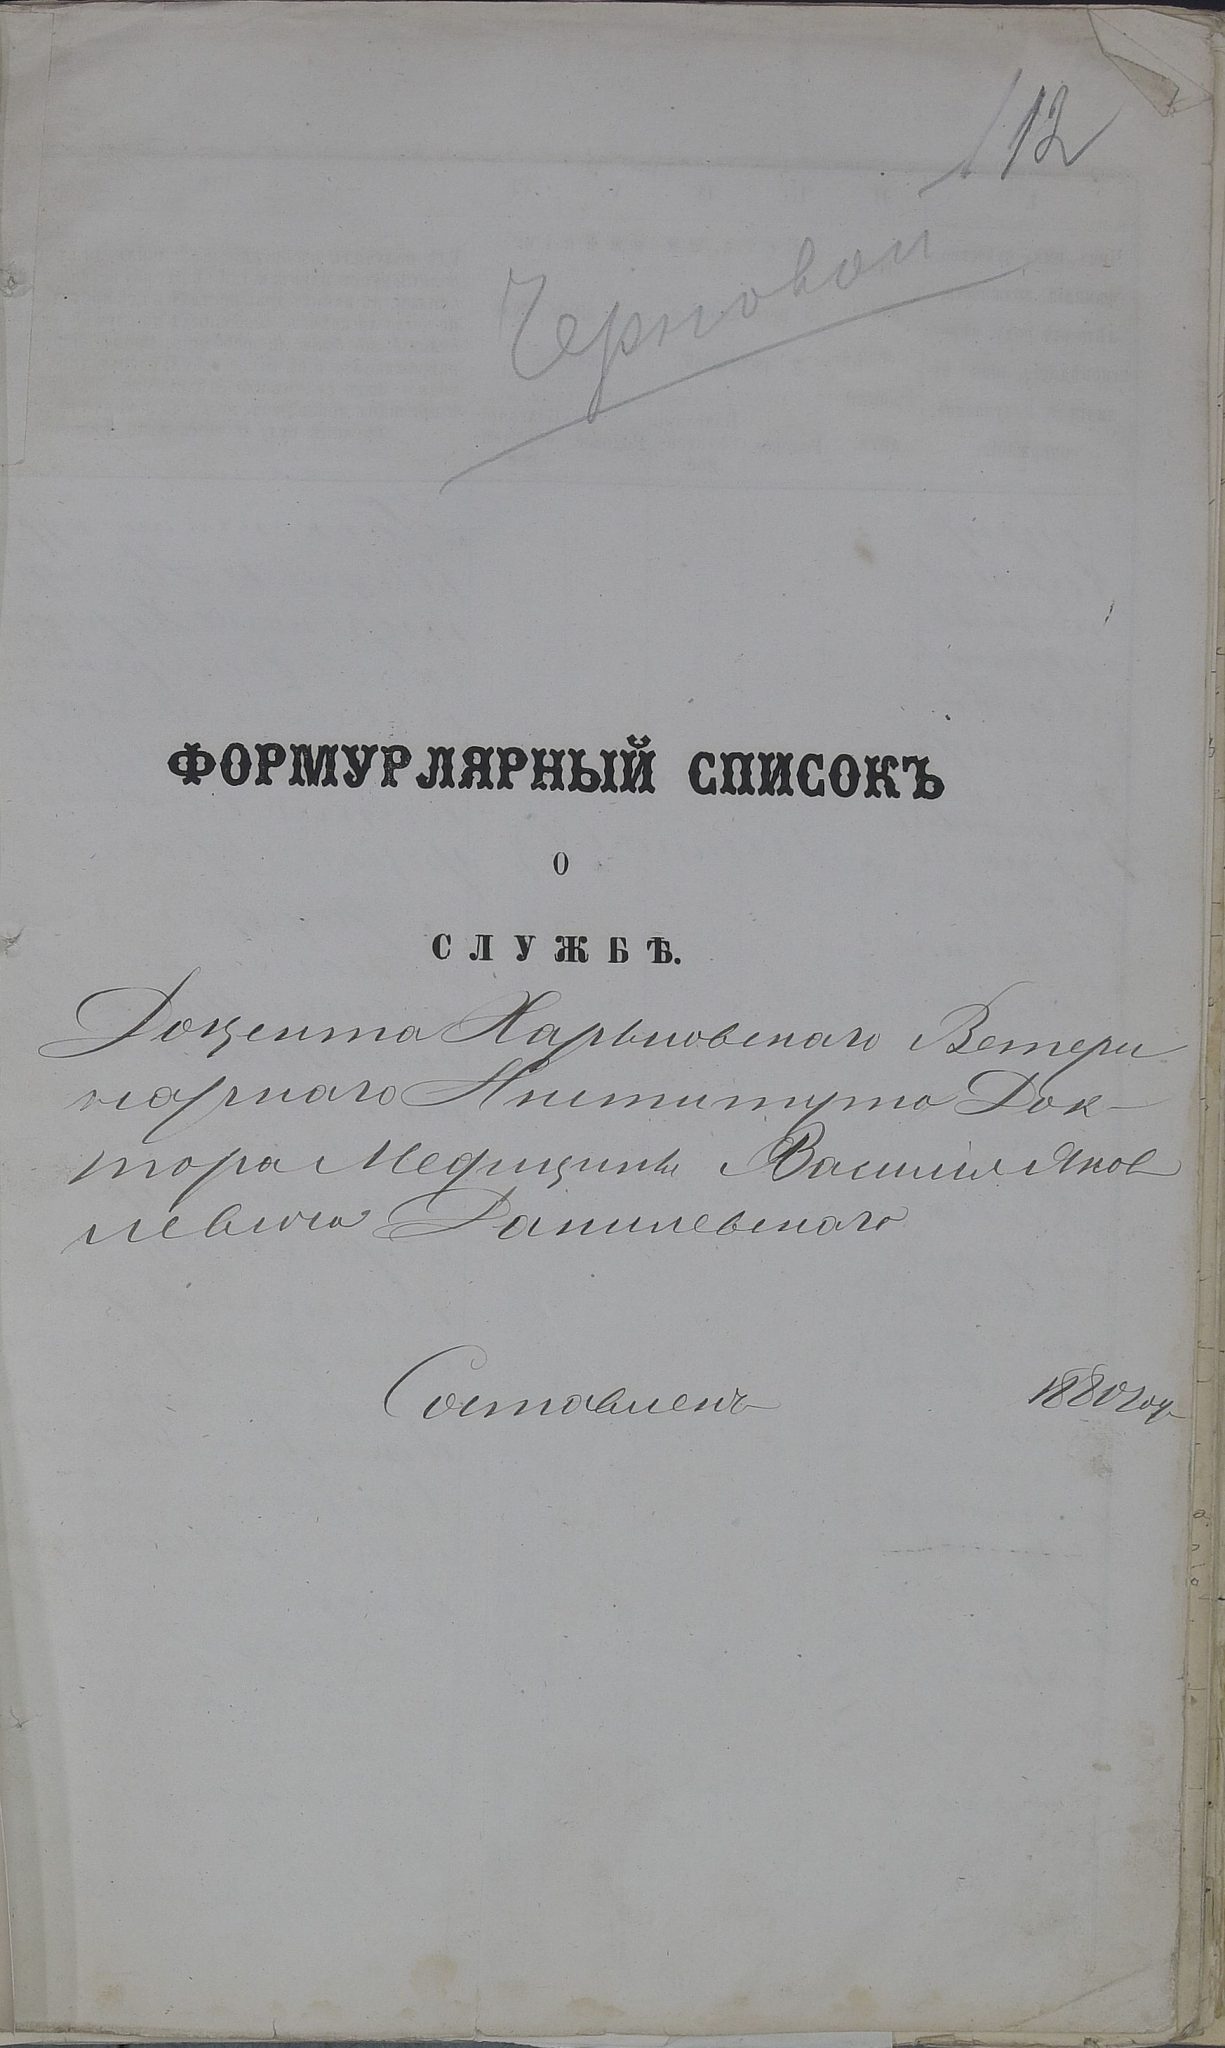 12
Черновой
ФОРМУРЛЯРНЫЙ СПИСОКЪ
О
СЛУЖБѢ.
Доцента Харьковскаго Ветери
нарнаго Института Док-
тора Медицины Василия Яков
левича Данилевскаго
Составленъ 1880 году